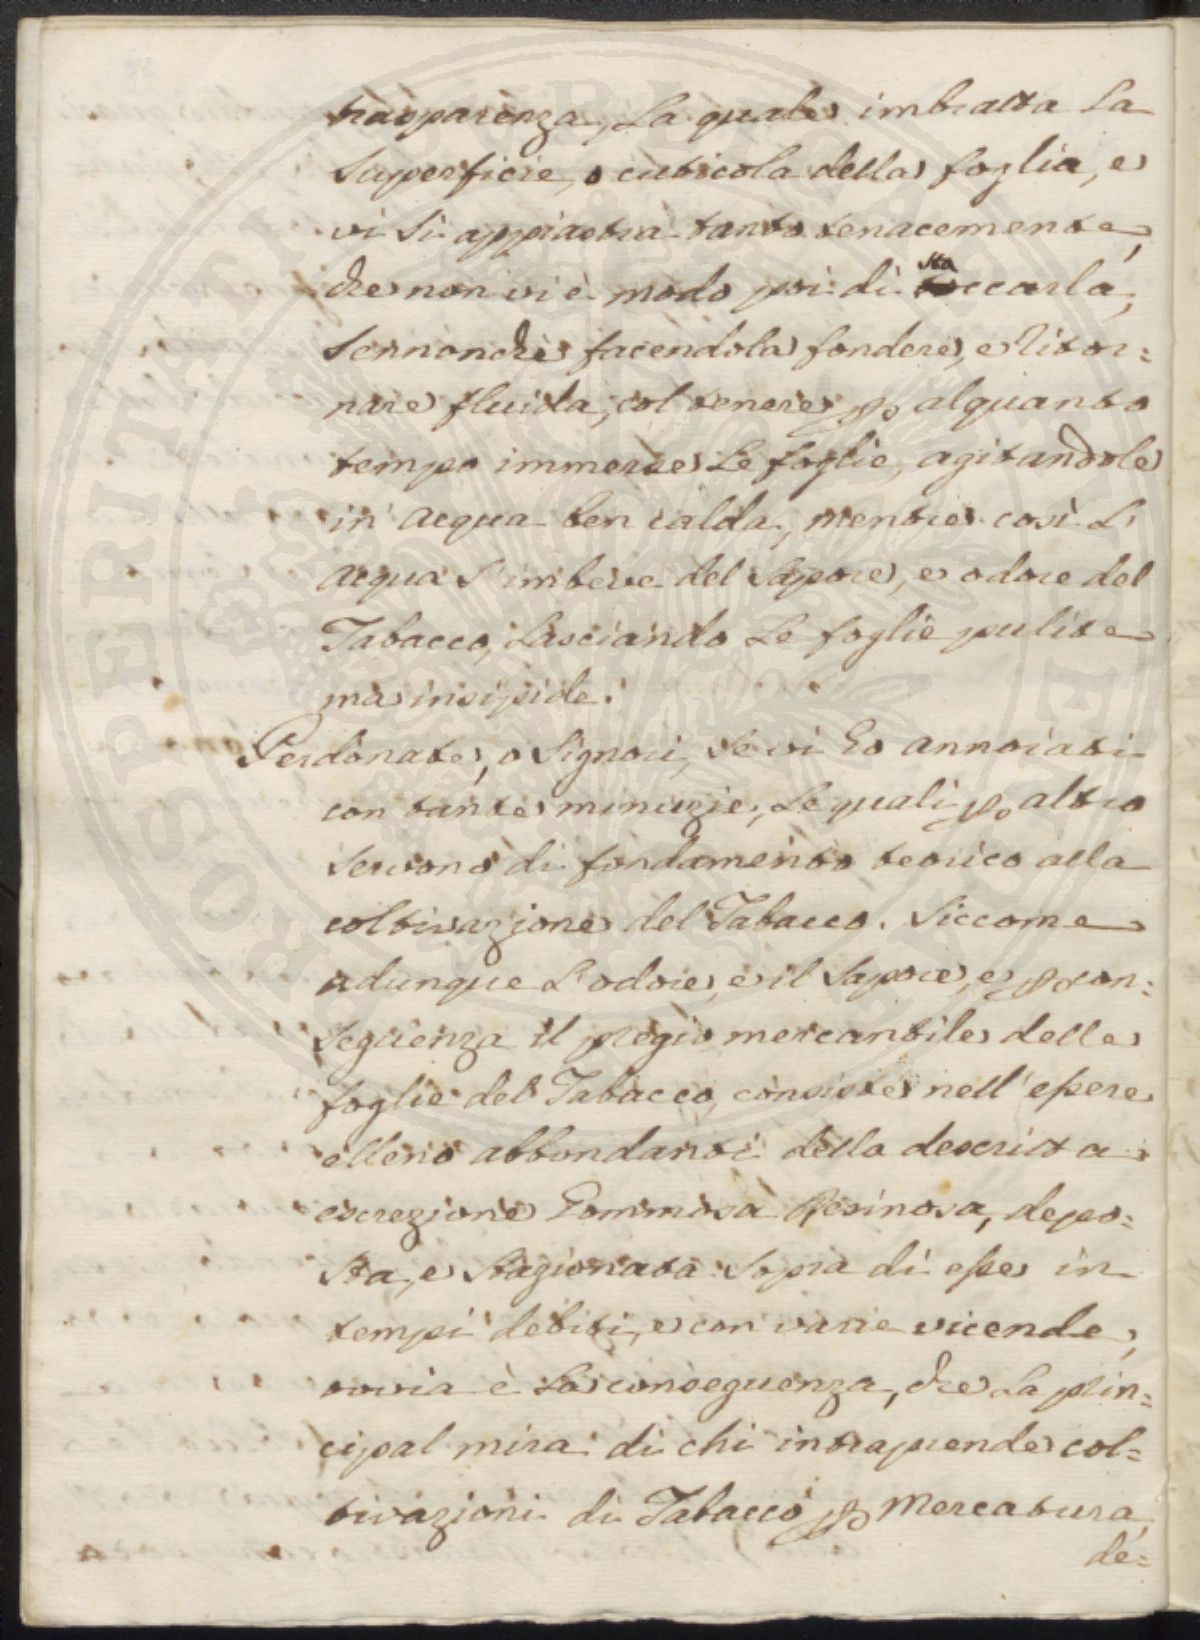 trasparenza, La quale imbratta La
Superficie, o cuticola della foglia, e
vi Si appiastra tanto tenacemente,
che non vi è modo poi di staccarla,
Sennonchè facendola fondere, e Ritor=
nare fluida, col tenere p alquanto
tempo immerse Le foglie, agitandole
in acqua ben calda, mentre così L'
acqua S'imbeve del Sapore, e odore del
Tabacco, Lasciando Le foglie pulite
ma insipide.
Perdonate, o Signori, Se vi ho annoiati
con tante minuzie, Le quali p altro
Servono di fondamento teorico alla
coltivazione del Tabacco. Siccome
adunque L'odore, e il Sapore, e p con=
Seguenza il pregio mercantile delle
foglie del Tabacco, consiste nell'essere
elleno abbondanti della descritta
escrezione Gommosa Resinosa, depo=
Sta, e Stagionata Sopra di esse in
tempi debiti, e con varie vicende,
ovvia è La conseguenza, che La prin=
cipal mira di chi intraprende col=
tivazioni di Tabacco p Mercatura,
de=
PROSPERITATI PUBLICAE